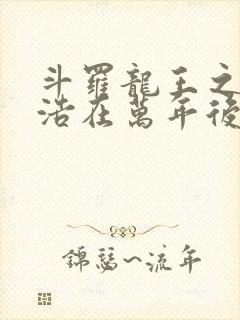 斗羅龍王之
浩在萬年後
錦瑟~流年